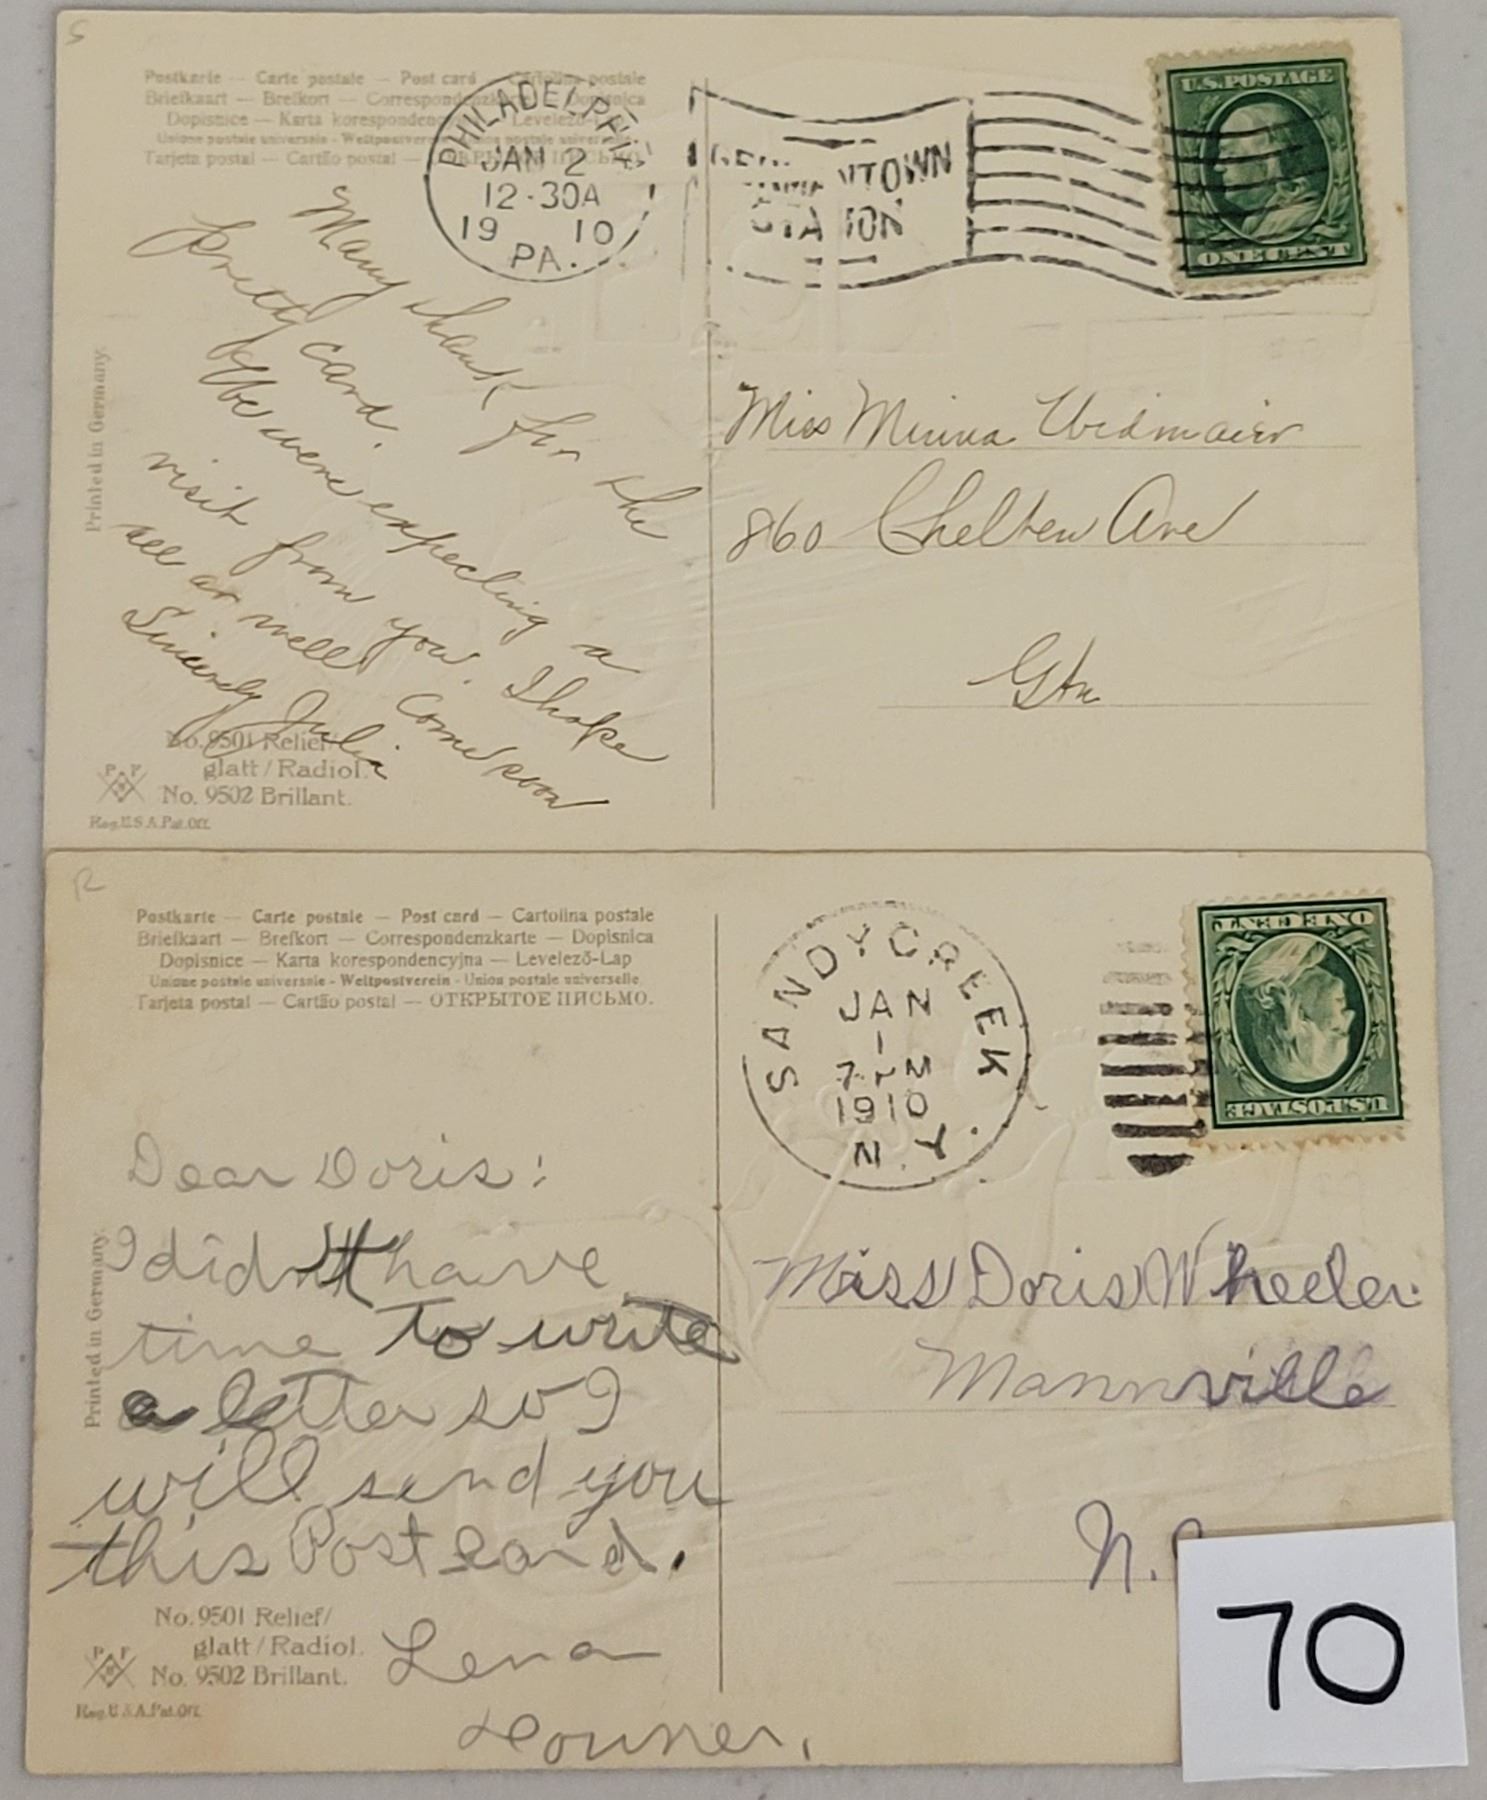 S
Postkarte — Carte postale — Post card — Cartolina postale
Briefkaart — Brefkort — Correspondenzkarte — Dopisnica
Dopisnice — Karta korespondencyjna — Levelező-Lap
Unione postale universale - Weltpostverein - Union postale universelle
Tarjeta postal — Cartão postal — ОТКРЫТОЕ ПИСЬМО.
PHILADELPHIA
JAN 2
12-30A
1910
PA.
GERMANTOWN
STATION
U.S.POSTAGE
ONE CENT
Many thank for the
pretty card.
We were expecting a
visit from you. I hope
all ar well Come soon
Sincerely Julia
Printed in Germany.
No. 9501 Relief/
glatt / Radiol.
No. 9502 Brillant.
P F B
Reg.U.S.A.Pat.Off.
Miss Minna Widmaier
860 Chelten Ave
Gtn
R
Postkarte — Carte postale — Post card — Cartolina postale
Briefkaart — Brefkort — Correspondenzkarte — Dopisnica
Dopisnice — Karta korespondencyjna — Levelező-Lap
Unione postale universale - Weltpostverein - Union postale universelle
Tarjeta postal — Cartão postal — ОТКРЫТОЕ ПИСЬМО.
SANDY CREEK
JAN
1
7 PM
1910
N.Y.
ONE CENT
U.S.POSTAGE
Dear Doris:
I didn't have
time to write
a letter so I
will send you
this Postcard.
Lena
Printed in Germany.
No. 9501 Relief/
glatt / Radiol.
No. 9502 Brillant.
P F B
Reg.U.S.A.Pat.Off.
Miss Doris Wheeler.
Mannville
N.
70